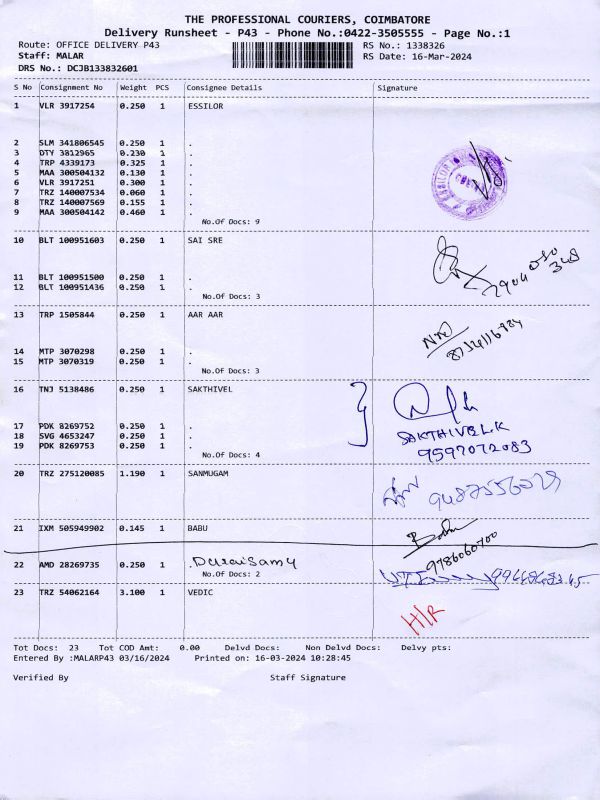 THE PROFESSIONAL COURIERS, COIMBATORE
Delivery Runsheet - P43 - Phone No.:0422-3505555 - Page No.:1
Route: OFFICE DELIVERY P43 RS No.: 1338326
Staff: MALAR RS Date: 16-Mar-2024
DRS No.: DCJB133832601
S No Consignment No Weight PCS Consignee Details Signature
1 VLR 3917254 0.250 1 ESSILOR
2 SLM 341806545 0.250 1 .
3 DTY 3812965 0.230 1 .
4 TRP 4339173 0.325 1 .
5 MAA 300504132 0.130 1 .
6 VLR 3917251 0.300 1 .
7 TRZ 140007534 0.060 1 .
8 TRZ 140007569 0.155 1 .
9 MAA 300504142 0.460 1 .
No.Of Docs: 9
10 BLT 100951603 0.250 1 SAI SRE
11 BLT 100951500 0.250 1 .
12 BLT 100951436 0.250 1 .
No.Of Docs: 3
13 TRP 1505844 0.250 1 AAR AAR
14 MTP 3070298 0.250 1 .
15 MTP 3070319 0.250 1 .
No.Of Docs: 3
16 TNJ 5138486 0.250 1 SAKTHIVEL
17 PDK 8269752 0.250 1 .
18 SVG 4653247 0.250 1 .
19 PDK 8269753 0.250 1 .
No.Of Docs: 4
SAKTHIVEL.K
9597072083
20 TRZ 275120085 1.190 1 SANMUGAM
21 IXM 505949902 0.145 1 BABU
9786060700
22 AMD 28269735 0.250 1 .Duraisamy
No.Of Docs: 2
23 TRZ 54062164 3.100 1 VEDIC
H/R
Tot Docs: 23 Tot COD Amt: 0.00 Delvd Docs: Non Delvd Docs: Delvy pts:
Entered By :MALARP43 03/16/2024 Printed on: 16-03-2024 10:28:45
Verified By Staff Signature